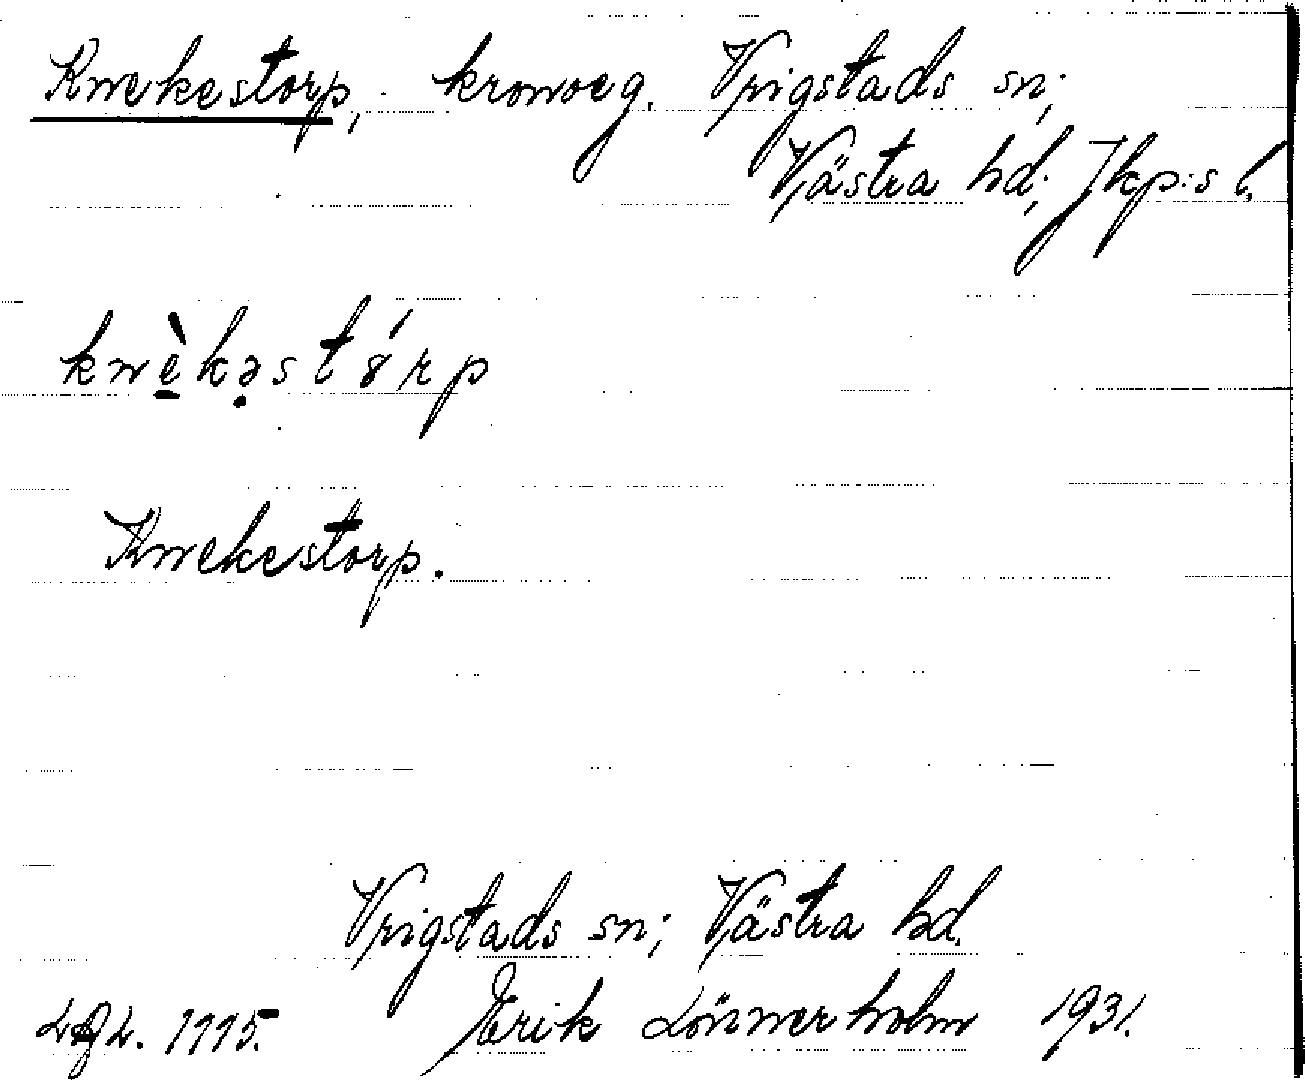 Knekestorp, kronoeg. Vrigstads sn;
Västra hd; Jkp:s l.
knèkəstórp
Knekestorp.
Vrigstads sn; Västra hd.
1115. Erik Lönnerholm 1931.